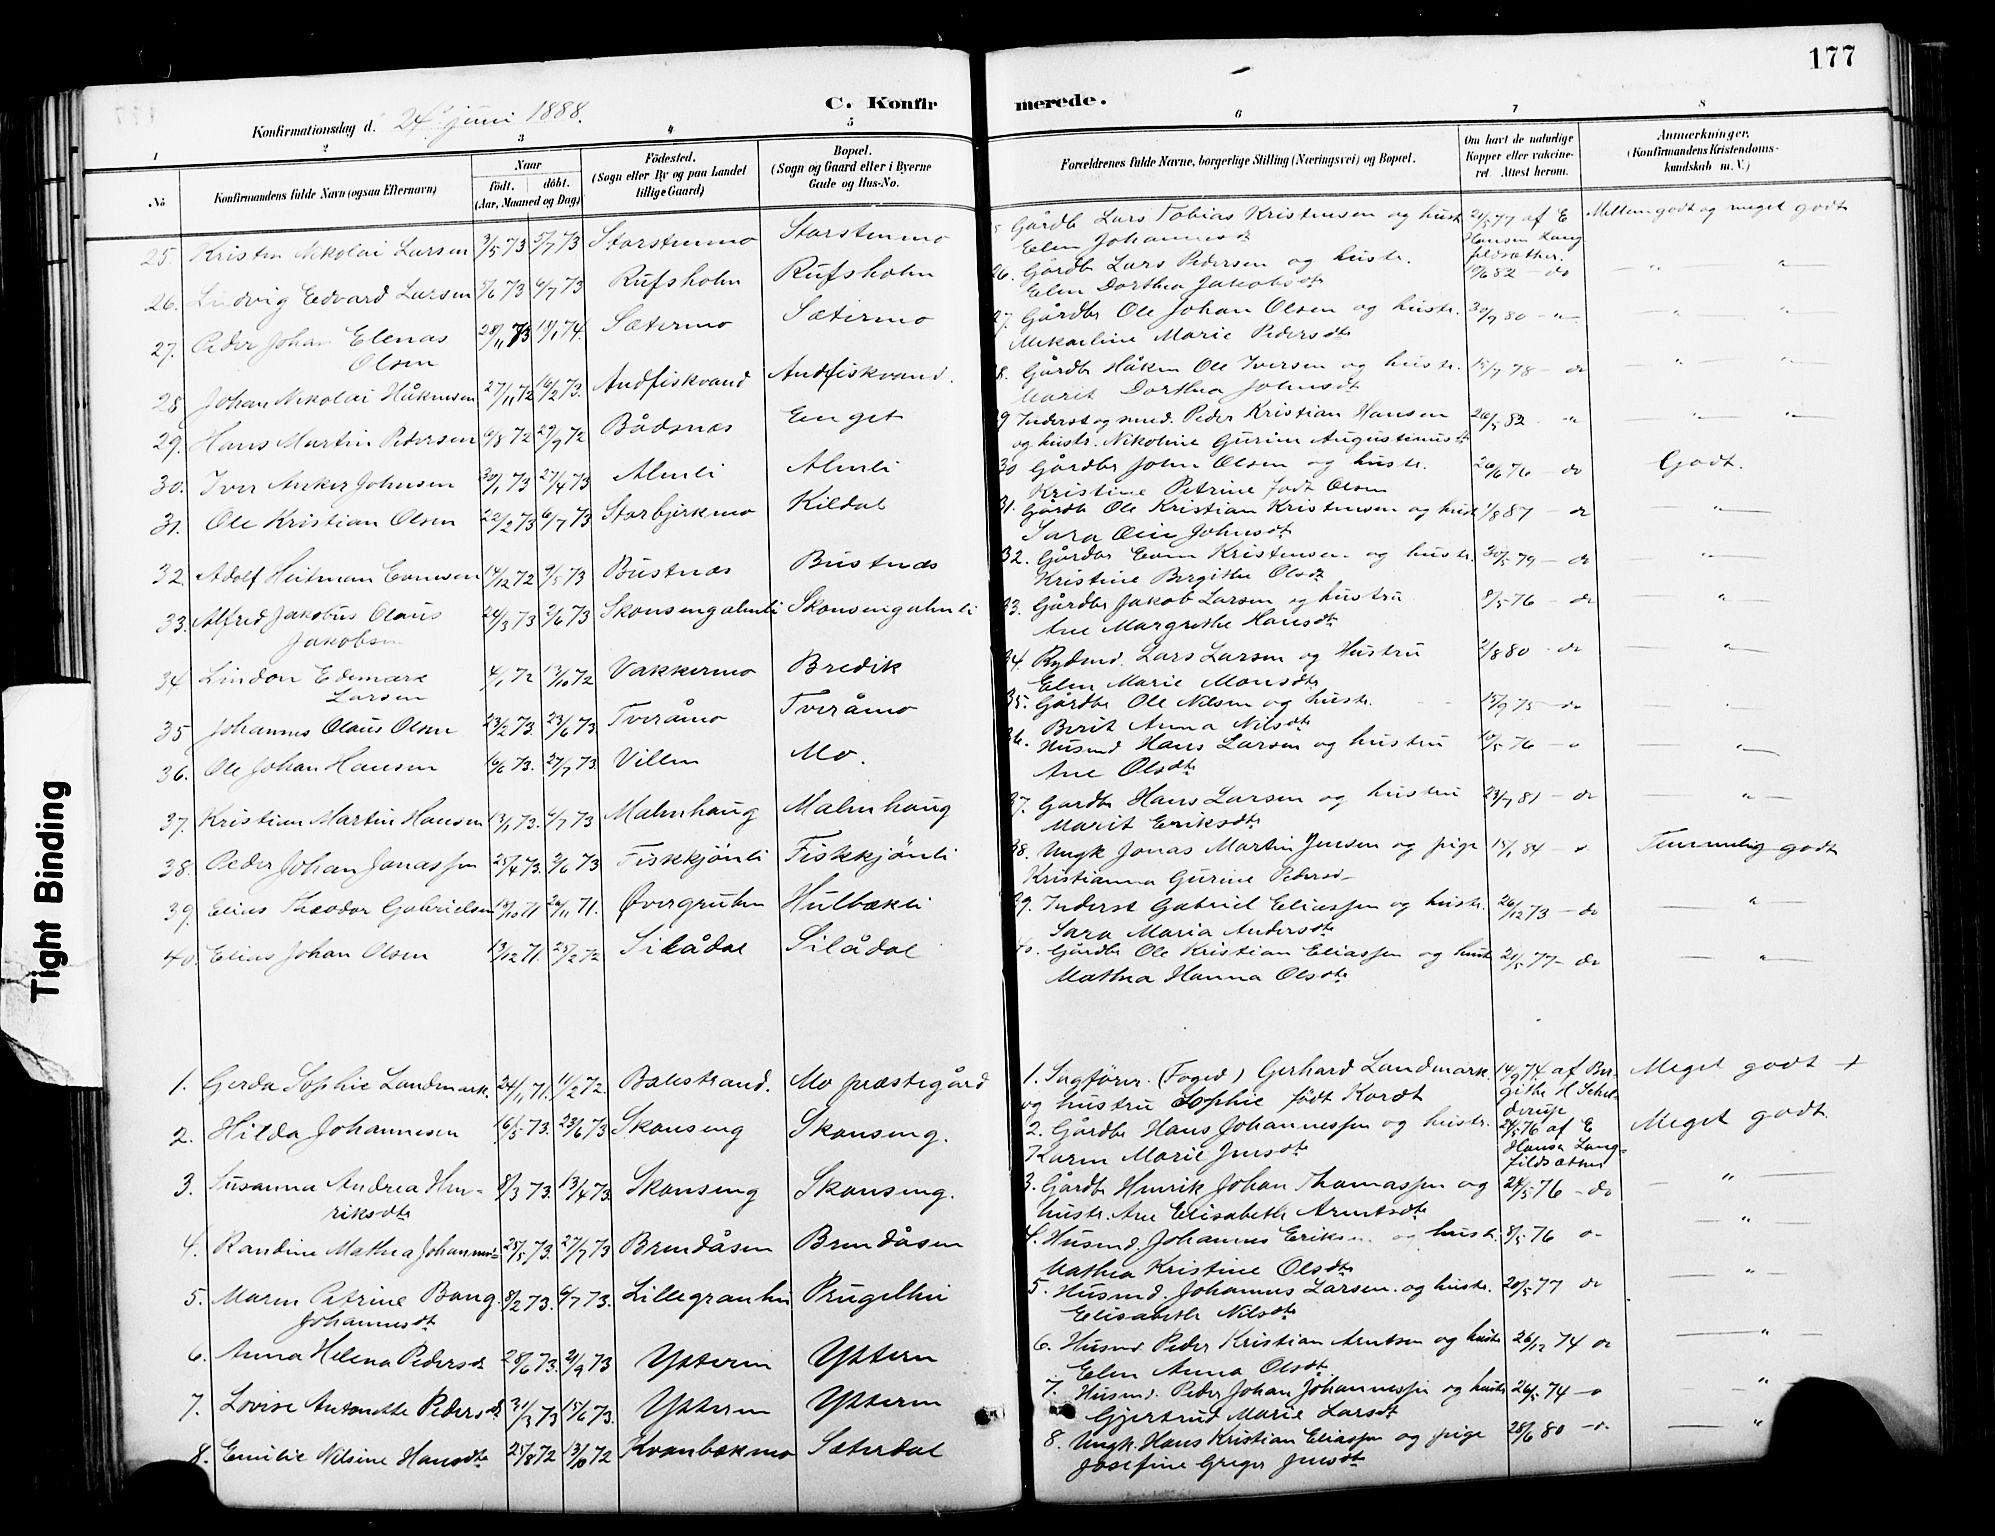 177
C. Konfirmerede.
Konfirmationsdag d. 24de juni 1888.
1 2 3 4 5 6 7 8
No
Konfirmandens fulde Navn (ogsaa Efternavn)
Naar
født. døbt.
(Aar, Maaned og Dag)
Födested.
(Sogn eller By og paa Landet
tillige Gaard)
Bopæl.
(Sogn og Gaard eller i Byerne
Gade og Hus-No.
Forældrenes fulde Navne, borgerlige Stilling (Næringsvei) og Bopæl.
Om havt de naturlige
Kopper eller vakcine-
ret. Attest herom.
Anmærkninger.
(Konfirmandens Kristendoms-
kundskab m. V.)
25. Kristen Nikolai Larsen 3/5 73 5/7 73 Storstenmo Storstenmo Gårdbr Lars Tobias Kristensen og hustr 21/5 77 af E Mellemgodt og meget godt
Elen Johannesdt Hansen Lang
fildsæther.
26. Ludvig Edvard Larsen 5/6 73 6/7 73 Rufsholm Rufsholm 26. Gårdbr Lars Pedersen og hustr. 19/6 82 — do — " "
Elen Dorthea Jakobsdt
27. Peder Johan Elenas 28/11 73 19/1 74. Sætermo Sætermo 27. Gårdbr Ole Johan Olsen og hustr. 30/7 80 — " — " "
Olsen Mikaeline Marie Pedersdt
28 Johan Nikolai Håkensen 27/11 72 16/2 73. Andfiskvand Andfiskvand. 8. Gårdbr Håken Ole Iversen og hustr. 15/7 78 — do — " "
Marit Dorthea Johnsdt
29. Hans Martin Pedersen 6/8 72 29/9 72 Bådsnæs Enget 29 Inderst og smed. Peder Kristian Hansen 26/5 82 " — " "
og hustr. Nikoline Gurine Augustinusdt
30. Iver Anker Johnsen 30/1 73 27/4 73 Almli Almli 30 Gårdbr John Olsen og hustr. 26/6 76 — do Godt.
Kristine Petrine født Olsen
31. Ole Kristian Olsen 22/2 73 6/7 73 Storbjerkmo Kildal 31. Gårdbr Ole Kristian Kristensen og hustr 1/8 87 — do — " —
Sara Johnsdt
32. Adolf Heitman Evensen 14/12 72 9/5 73 Bustnæs Bustnæs 32. Gårdbr Even Kristensen og hustr. 30/5 79 — do — " —
Kristine Bergithe Olsdt
33. Alfred Jakobus Olaus 24/3 73 2/6 73 Skonsengalmli Skonsengalmli 33. Gårdbr Jakob Larsen og hustru 8/5 76 — do — " —
Jakobsen Ane Margrethe Hansdt
34 Lindon Edemare 4/1 72 13/10 72 Vakkermo Bredik 34. Rydmd. Lars Larsen og Hustru 2/8 80 do — " —
Larsen Elen Marie Monsdt
35 Johannes Olaus Olsen 23/2 73. 23/6 73. Tveråmo Tveråmo 35. Gårdbr Ole Nilsen og hustr. 15/9 75 — do
Berit Anna Nilsdt
36. Ole Johan Hansen 16/6 73. 27/7 73. Villem Mo. 36. Husmd Hans Larsen og hustru 10/5 76 — " — " —
Ane Olsdt
37. Kristian Martin Hansen 13/1 73. 6/7 73 Malmhaug Malmhaug 37. Gårdbr Hans Larsen og hustru 23/7 81 — do — " —
Marit Eriksdt
38. Peder Johan Jonassen 25/4 73. 2/6 73 Fiskkjönli Fiskkjönli 38. Ungk Jonas Martin Jensen og pige 15/1 84 — " Temmelig godt
Kristianna Gurine Pedersd
39. Elias Theodor Gabrielsen 13/10 71 26/11 71. Övergruben Hulbækli 39. Inderst Gabriel Eliassen og hustr. 26/12 73 — do — " —
Sara Maria Andersdt
40. Elias Johan Olsen 13/12 71. 25/2 72 Silådal Silådal 40. Gårdbr Ole Kristian Eliassen og hustr 21/5 77 — do — " —
Mathea Hanna Olsdt
1. Gerda Sophie Landmark. 24/11 71. 11/2 72. Balestrand. Mo præstegård 1. Sagfører. (Foged) Gerhard Landmark. 14/9 74 af Bir- Meget godt +
og hustru Sophie født Kordt githe H Schel-
derup
2. Hilda Johannesen 16/5 73. 23/6 73 Skonseng Skonseng. 2. Gårdbr Hans Johannessen og hustr. 24/5 76 af E Meget godt.
Karen Marie Jensdt Hansen Lang-
fildsæther
3. Susanna Andrea Hen- 8/3 73. 13/4 73. Skonseng Skonseng. 3. Gårdbr Henrik Johan Thomassen og 24/5 76 — do — " —
riksdt hustr. Ane Elisabeth Arntsdt
4. Randine Mathea Johannesd 25/5 73. 27/7 73 Brendåsen Brendåsen 4. Husmd. Johannes Eriksen og hustr. 8/5 76 " — " —
Mathea Kristine Olsdt
5. Maren Petrine Bang 8/2 73. 6/7 73. Lillegranhei Prügelhei 5. Husmd. Johannes Larsen og hustr. 20/5 77 do — " —
Johannesdt Elisabeth Nilsdt
6. Anna Helena Pedersd 28/6 73. 21/9 73 Ytteren Ytteren 6. Husmd Peder Kristian Arntsen og hustr 26/12 74 do — " —
Elen Anna Olsdt
7. Lovise Antonette Pedersdt 31/3 73 15/6 73. Ytteren Ytteren 7. Husmd. Peder Johan Johannessen og hustr 26/5 74 — " — "
Gjertrud Marie Larsdt
8. Emilie Nilsine Hansdt 25/8 72 13/10 72 Kvanbækmo Sæterdal 8. Ungk. Hans Kristian Eliassen og pige 28/6 80 — do — " —
Josefine Greger Jensdt
Tight Binding